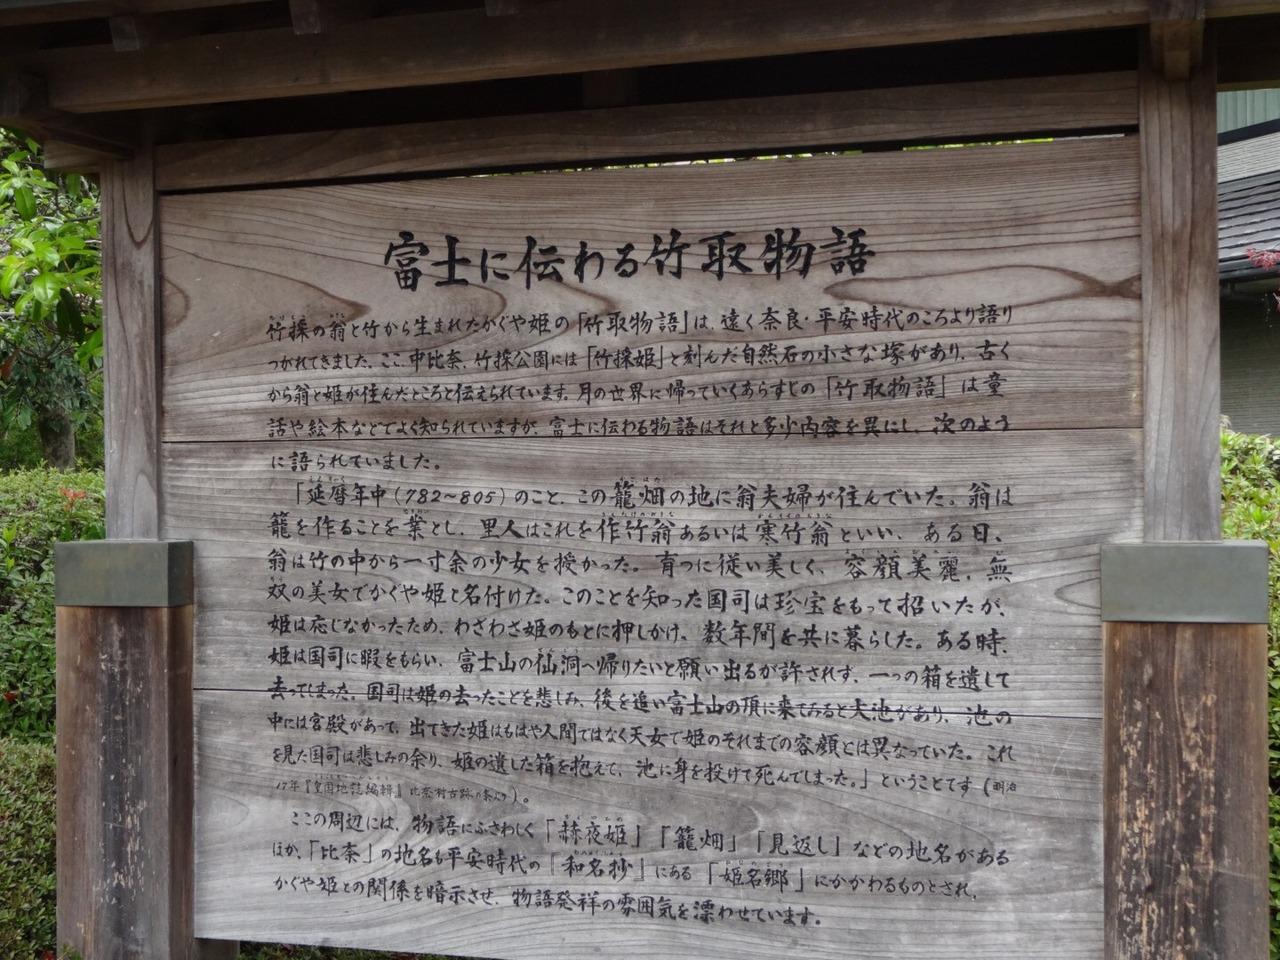 富士に伝わる竹取物語
竹採の翁と竹から生まれたかぐや姫の「竹取物語」は、遠く奈良・平安時代のころより語り
つがれてきました。ここ、中比奈、竹採公園には「竹採姫」と刻んだ自然石の小さな塚があり、古く
から翁と姫が住んだところと伝えられています。月の世界に帰っていくあらすじの「竹取物語」は童
話や絵本などでよく知られていますが、富士に伝わる物語はそれと多少内容を異にし、次のよう
に語られていました。
「延暦年中(782~805)のこと、この籠畑の地に翁夫婦が住んでいた。翁は
籠を作ることを業とし、里人はこれを作竹翁あるいは寒竹翁といい、ある日、
翁は竹の中から一寸余の少女を授かった。育つに従い美しく、容顔美麗、無
双の美女でかぐや姫と名付けた。このことを知った国司は珍宝をもって招いたが、
姫は応じなかったため、わざわざ姫のもとに押しかけ、数年間を共に暮らした。ある時、
姫は国司に暇をもらい、富士山の仙洞へ帰りたいと願い出るが許されず、一つの箱を遺して
去ってしまった。国司は姫の去ったことを悲しみ、後を追い富士山の頂に来てみると大池があり、池の
中には宮殿があって、出てきた姫はもはや人間ではなく天女で姫のそれまでの容顔とは異なっていた。これ
を見た国司は悲しみの余り、姫の遺した箱を抱えて、池に身を投げて死んでしまった。」ということです(明治
17年『皇国地誌編輯』比奈村古跡の条より)。
ここの周辺には、物語にふさわしく「赫夜姫」「籠畑」「見返し」などの地名がある
ほか、「比奈」の地名も平安時代の『和名抄』にある「姫名郷」にかかわるものとされ、
かぐや姫との関係を暗示させ、物語発祥の雰囲気を漂わせています。